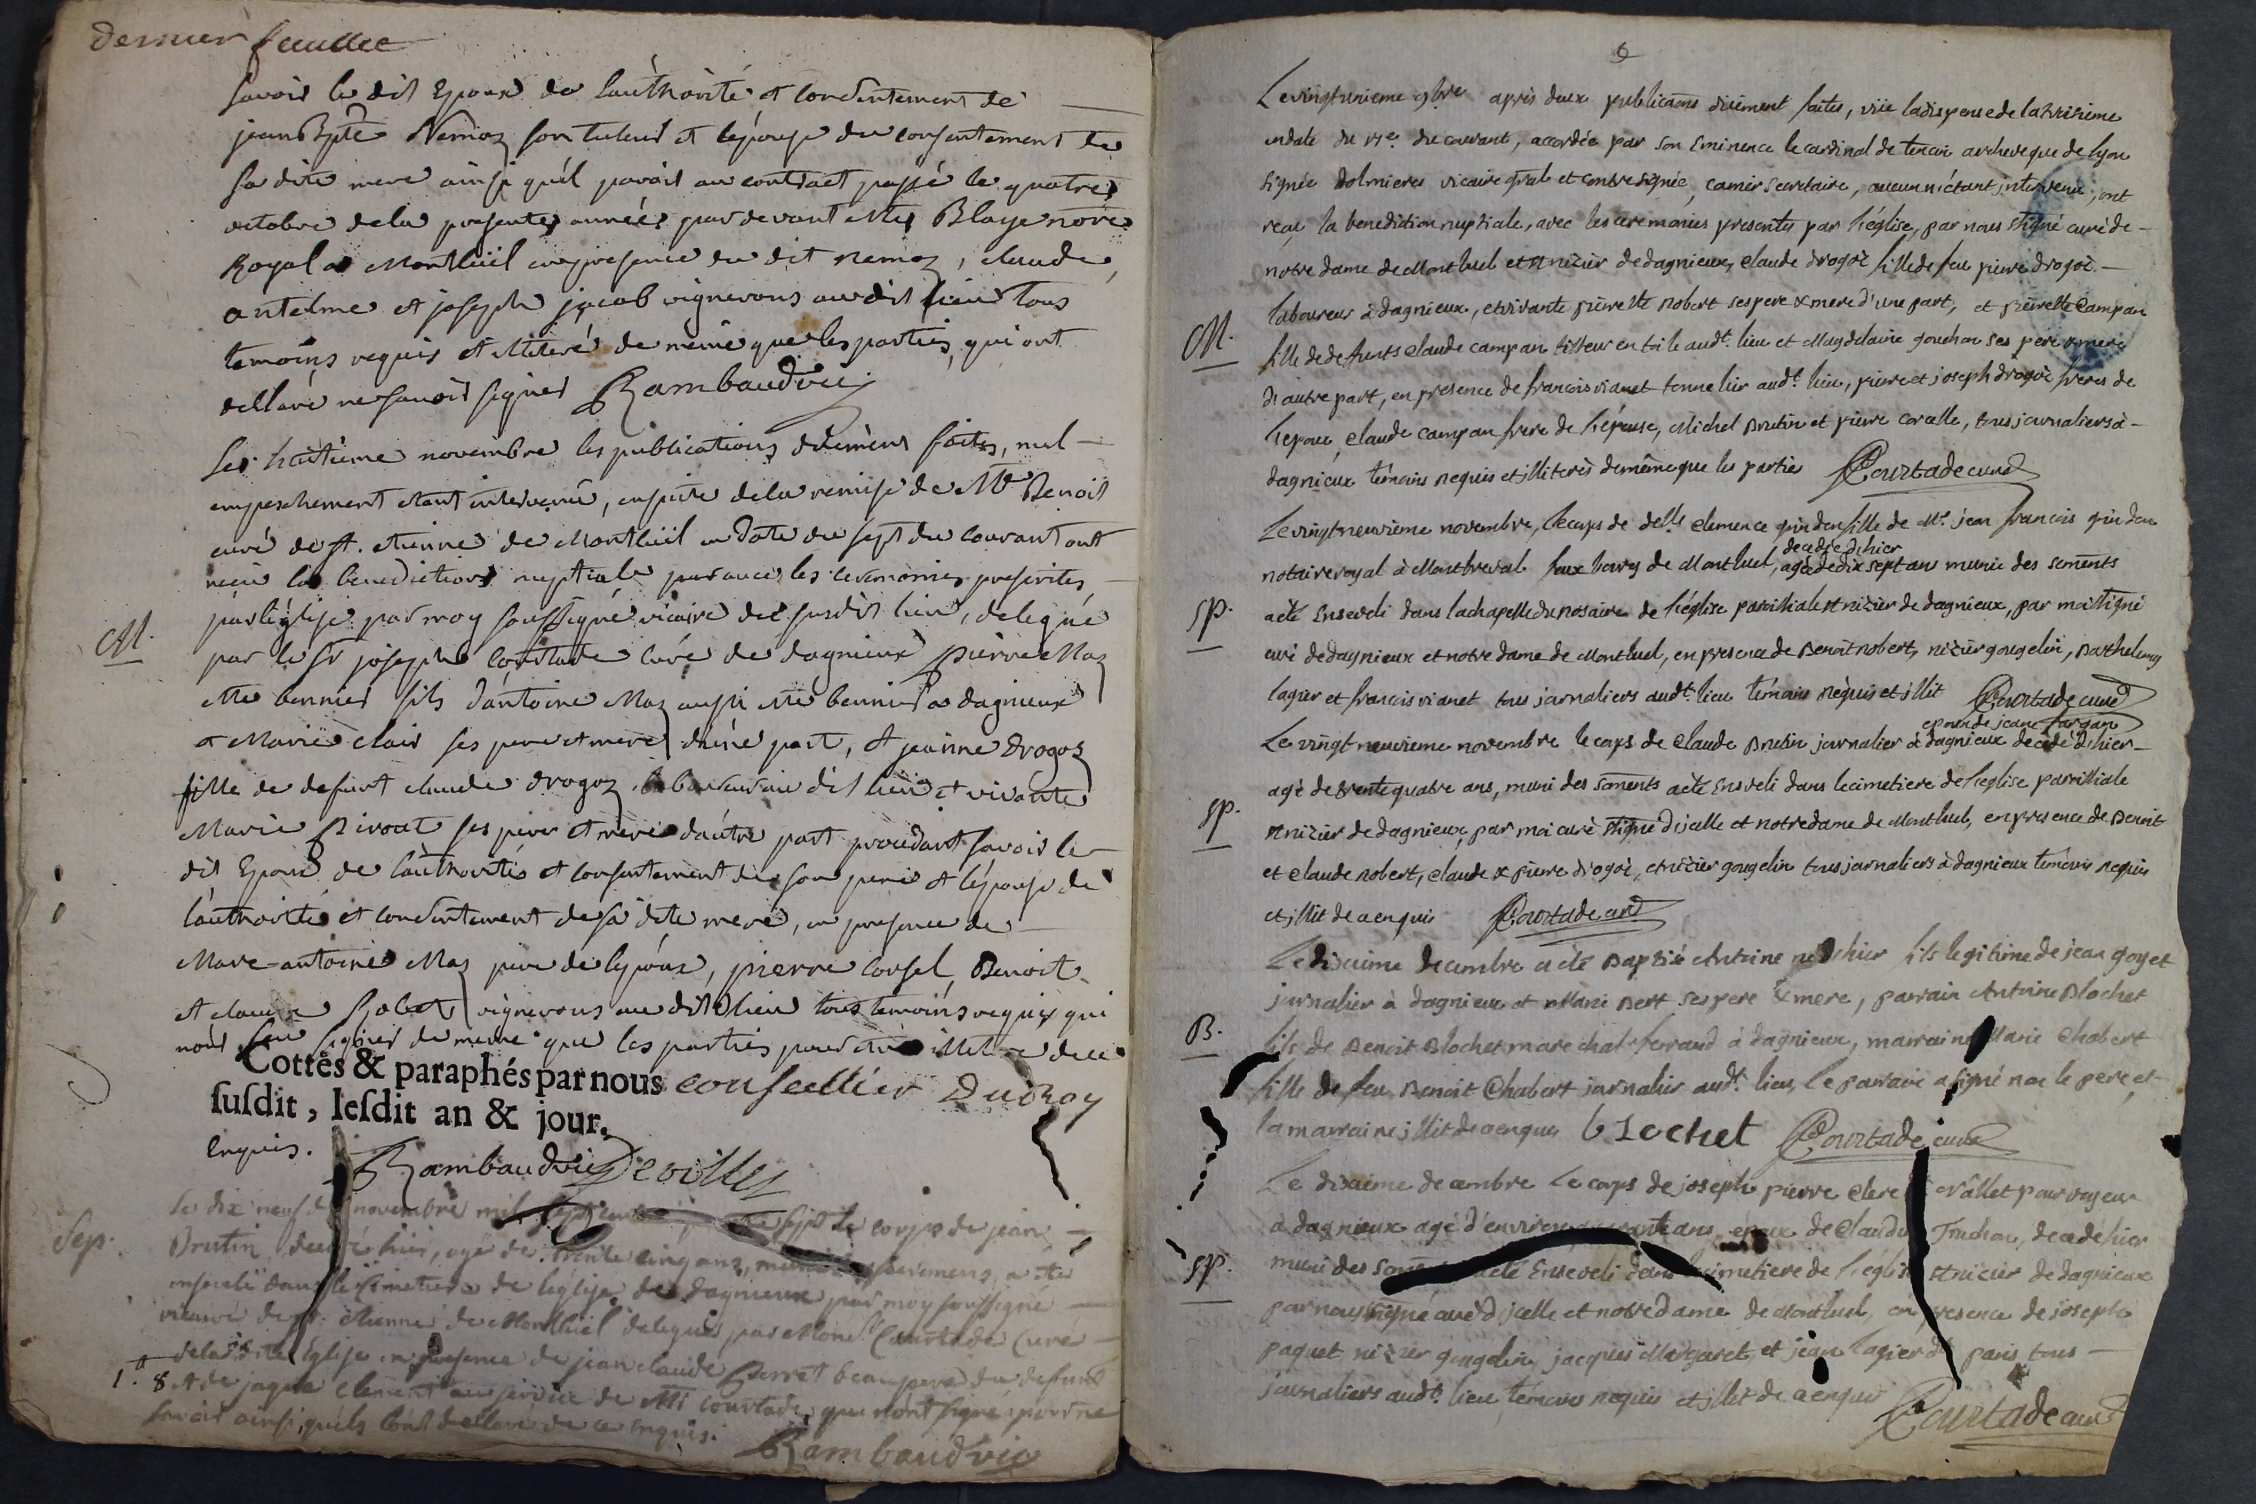 dernier feuillet
savoir le dit Epoux de l'authorité et consentement de
jean Bpte Nemoz son tuteur et l'epouse du consentement de
sa dite mere ainsi qu'il paroit au contract passé le quatre
octobre de la presente année pardevant Mtre Blaye nore
Royal a Montluël en presence du dit nemoz, claude
antelme et joseph jacob vignerons au dit lieu tous
temoins requis et illiteré de même que les parties, qui ont
dellaré ne savoir signer Rambaud vic
Le huitième novembre les publications düement faites, nul
empeschement étant intervenü, ensuite de la remise de Mre Benoit
curé de st. etienne de Montluël en date du sept du courant ont
reçu la benediction nuptiale par avec les ceremonies prescrites
par l'eglise par moy soussigné vicaire de susdit lieu, delegué
M.
par le sr joseph Courtade curé de dagnieux pierre Maz
fils d'antoine Maz aussi a dagnieux
et Marie clair ses pere et mere d'une part, et jeanne Drogoz
fille de defunt claude drogoz laboureur au dit lieu et vivante
Marie Pivoat ses pere et mere d'autre part procedant savoir le
dit Epoux de l'authorité et consentement de son pere et l'épouse de
l'authorité et consentement de sa dite mere, en presence de
Marc-antoine Maz pere de lepoux, pierre corsel, Benoit
et claude Robert vignerons au dit lieu tous temoins requis qui
n'ont sçu signer de meme que les parties pour être illit de ce
Cottés & paraphés par nous conseillier Duchoy
susdit, lesdit an & jour.
Enquis.
Rambaud vic Devilles
Le dix neuf de novembre mil sept cent sept le corps de jean
Sep.
Brutin decedé hier, agé de trente cinq ans, muni sacremens, a été
inseveli dans le cimetiere de leglise de dagnieux par moy soussigné
vicaire de st. etienne de Montluël delegué par Mons. Courtade Curé
de la dite église en presence de jean claude Perret beaupere du defunt
1. 8 et de jaque clement au service de Mr courtade, qui n'ont signé pour ne
savoir ainsi qu'ils l'ont dellaré de ce enquis.
Rambaud vic
Le vingtunieme 9bre après deux publications düement faites, vüe la dispense de la troisieme
en date du 17e. du courant, accordée par son Eminence le cardinal de tencin archeveque de lyon
signée dolmieres vicaire gnal et contresignée, camier secretaire, aucun n'étant intervenu, ont
reçu la benediction nuptiale, avec les ceremonies presentes par l'église, par nous signé curé de
notre dame de Montluel et st nizier de dagnieux, Claude drogoz fils de feu pierre drogoz
laboureur à dagnieux, et vivante pierrette Robert ses pere & mere d'une part, et pierrette Campan
M.
fille de defunts claude campan tisseur en toile audt. lieu et Magdelaine pouchon ses pere & mere
d'autre part, en presence de francois vianet tonnelier audt. lieu, pierre et joseph drogoz freres de
l'epoux, claude campan frere de l'épouse, Michel Brutin et pierre coralle, tous journaliers à
dagnieux témoins requis et illiterés de même que les parties Courtade curé
Le vingtneuvieme novembre, le corps de delle clemence grindon fille de Mr. jean francois grindon
decedée d'hier
notaire royal à Montbreval faux bourg de Montluel, agée de dix sept ans munie des sements
sp.
a été Enseveli dans la chapelle du rosaire de l'église paroissiale st nizier de dagnieux, par moi sigñé
curé de dagnieux et notre dame de Montluel, en presence de Benoit robert, nizier gougelin, Barthelemy
lagier et francois vianet tous journaliers audt. lieu témoins réquis et illit Courtade curé
epoux de jeane fargan
Le vingt neuvieme novembre le corps de Claude Brutin journalier à dagnieux decedé d'hier
agé de trente quatre ans, muni des sements a été Enseveli dans le cimetiere de l'eglise paroissiale
sp.
st nizier de dagnieux, par moi curé sigñé d'icelle et notre dame de Montluel, en presence de Benoit
et claude Robert, claude & pierre drogoz, et nizier gougelin tous journaliers à dagnieux temoins requis
et illit de ce enquis Courtade curé
Le dixieme decembre a été Baptisé Antoine né d'hier fils legitime de jean goyet
journalier à dagnieux et Marie Bert ses pere & mere, parrain Antoine Blochet
B.
fils de Benoit Blochet marechal ferrand à dagnieux, marraine Marie Chabert
fille de feu Benoit Chabert journalier audt. lieu, le parrain a signé non le pere, et
la marraine illit de ce enquis blochet Courtade curé
Le dixieme decembre le corps de joseph pierre clere Vallet pourvoyeur
à dagnieux agé d'environ quarante ans, epoux de Claudine Truchon, decedé hier
sp.
muni des Sements a été Enseveli dans le cimetiere de l'eglise st nizier de dagnieux
par nous sigñé curé d'icelle et notre dame de Montluel, en presence de joseph
paquet nizier gougelin, jacques Margaret, et jean lagier dt paris tous
journaliers audt. lieu témoins requis et illit de ce enquis Courtade curé